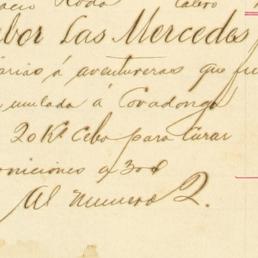 Roda Calero
bor Las Mercedes
arias á aventureras que fu
mulada á Covadonga
20 Ks Cebo para tirar
niciones a 30
Al numero 2.